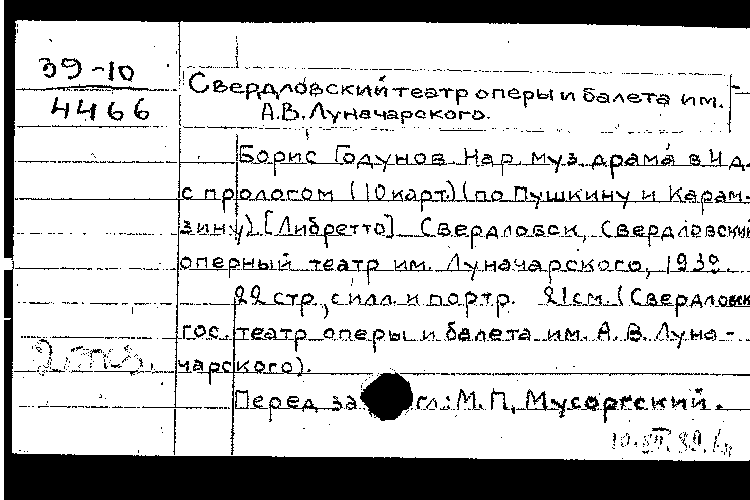 39-10
4466
Свердловский театр оперы и балета им.
А.В. Луначарского.
Борис Годунов. Нар. муз. драма в 4 д.
с прологом (10 карт) (по Пушкину и Карам-
зину). [Либретто]. Свердловск, Свердловский
оперный театр им. Луначарского, 1939.
22 стр., с илл. и портр. 21 см. (Свердловск
гос. театр оперы и балета им. А. В. Луна-
чарского).
2 экз.
Перед за гл.: М. П. Мусоргский.